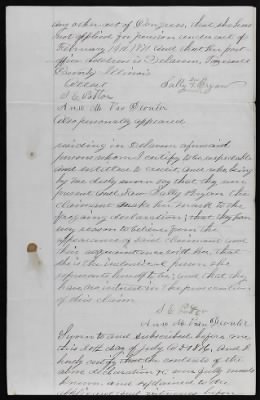 any other act of Congress, that she has
not applied for pension under act of
February 14th 1871 and that her post
office address is Delavan, Tazewell
County Illinois
Attest Sally Bryan
S E
Ann M Van Deventer
Also personally appeared
residing in Delavan aforesaid
persons whom I certify to be respectable
and entitled to credit, and who being
by me duly sworn say that they were
present and saw Sally Bryan the
claimant make her mark to the
foregoing declaration; that they have
every reason to believe from the
appearance of said claimant and
their acquaintance with her, that
she is the individual person she
represents herself to be; and that they
have no interest in the prosecution
of this claim
S E
Ann M Van Deventer
Sworn to and subscribed before me
this day of July AD and I
hereby certify that the contents of the
above declaration &c were fully made
known and explained to the